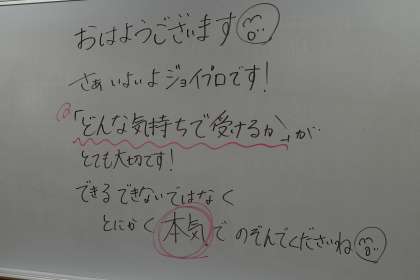 おはようございます
さぁ いよいよ ジョイプロです!
「どんな気持ちで受けるか」が…
とても大切です!
できる できないではなく
とにかく 本気で のぞんでくださいね